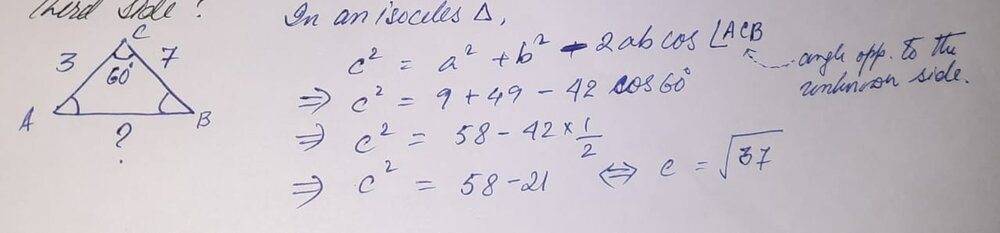 third side?
In an isoceles Δ,
C
3 60° 7
A B
?
c² = a² + b² - 2ab cos ∠ACB
angle opp. to the
unknown side.
⇒ c² = 9 + 49 - 42 cos 60°
⇒ c² = 58 - 42 × 1/2
⇒ c² = 58 - 21 ⇔ c = √37